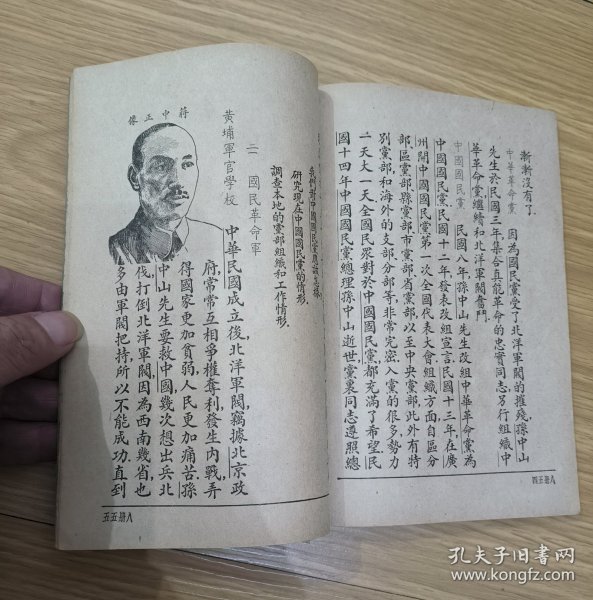 漸漸沒有了.
中華革命黨 因為國民黨受了北洋軍閥的摧殘,孫中山
先生於民國三年集合真能革命的忠實同志,另行組織中
華革命黨繼續和北洋軍閥奮鬥.
中國國民黨 民國八年,孫中山先生改組中華革命黨為
中國國民黨.民國十二年發表改組宣言.民國十三年,在廣
州開中國國民黨第一次全國代表大會,組織方面,自區分
部,區黨部,縣黨部,市黨部,省黨部,以至中央黨部,此外有特
別黨部,和海外的支部,分部等,非常完密,入黨的很多,勢力
一天大一天,全國民眾對於中國國民黨,都充滿了希望.民
國十四年,中國國民黨總理孫中山逝世,黨裏同志遵照總
八冊五四
我們對中國國民黨應該怎樣.
研究現在中國國民黨的情形.
調查本地的黨部組織和工作情形.
三 國民革命軍
黃埔軍官學校 中華民國成立後,北洋軍閥竊據北京政
府,常常互相爭權奪利,發生內戰,弄
得國家更加貧弱,人民更加痛苦.孫
中山先生要救中國,幾次想出兵北
伐,打倒北洋軍閥,因為西南幾省,也
多由軍閥把持,所以不能成功.直到
蔣中正像
八冊五五
孔夫子旧书网
www.kongfz.com